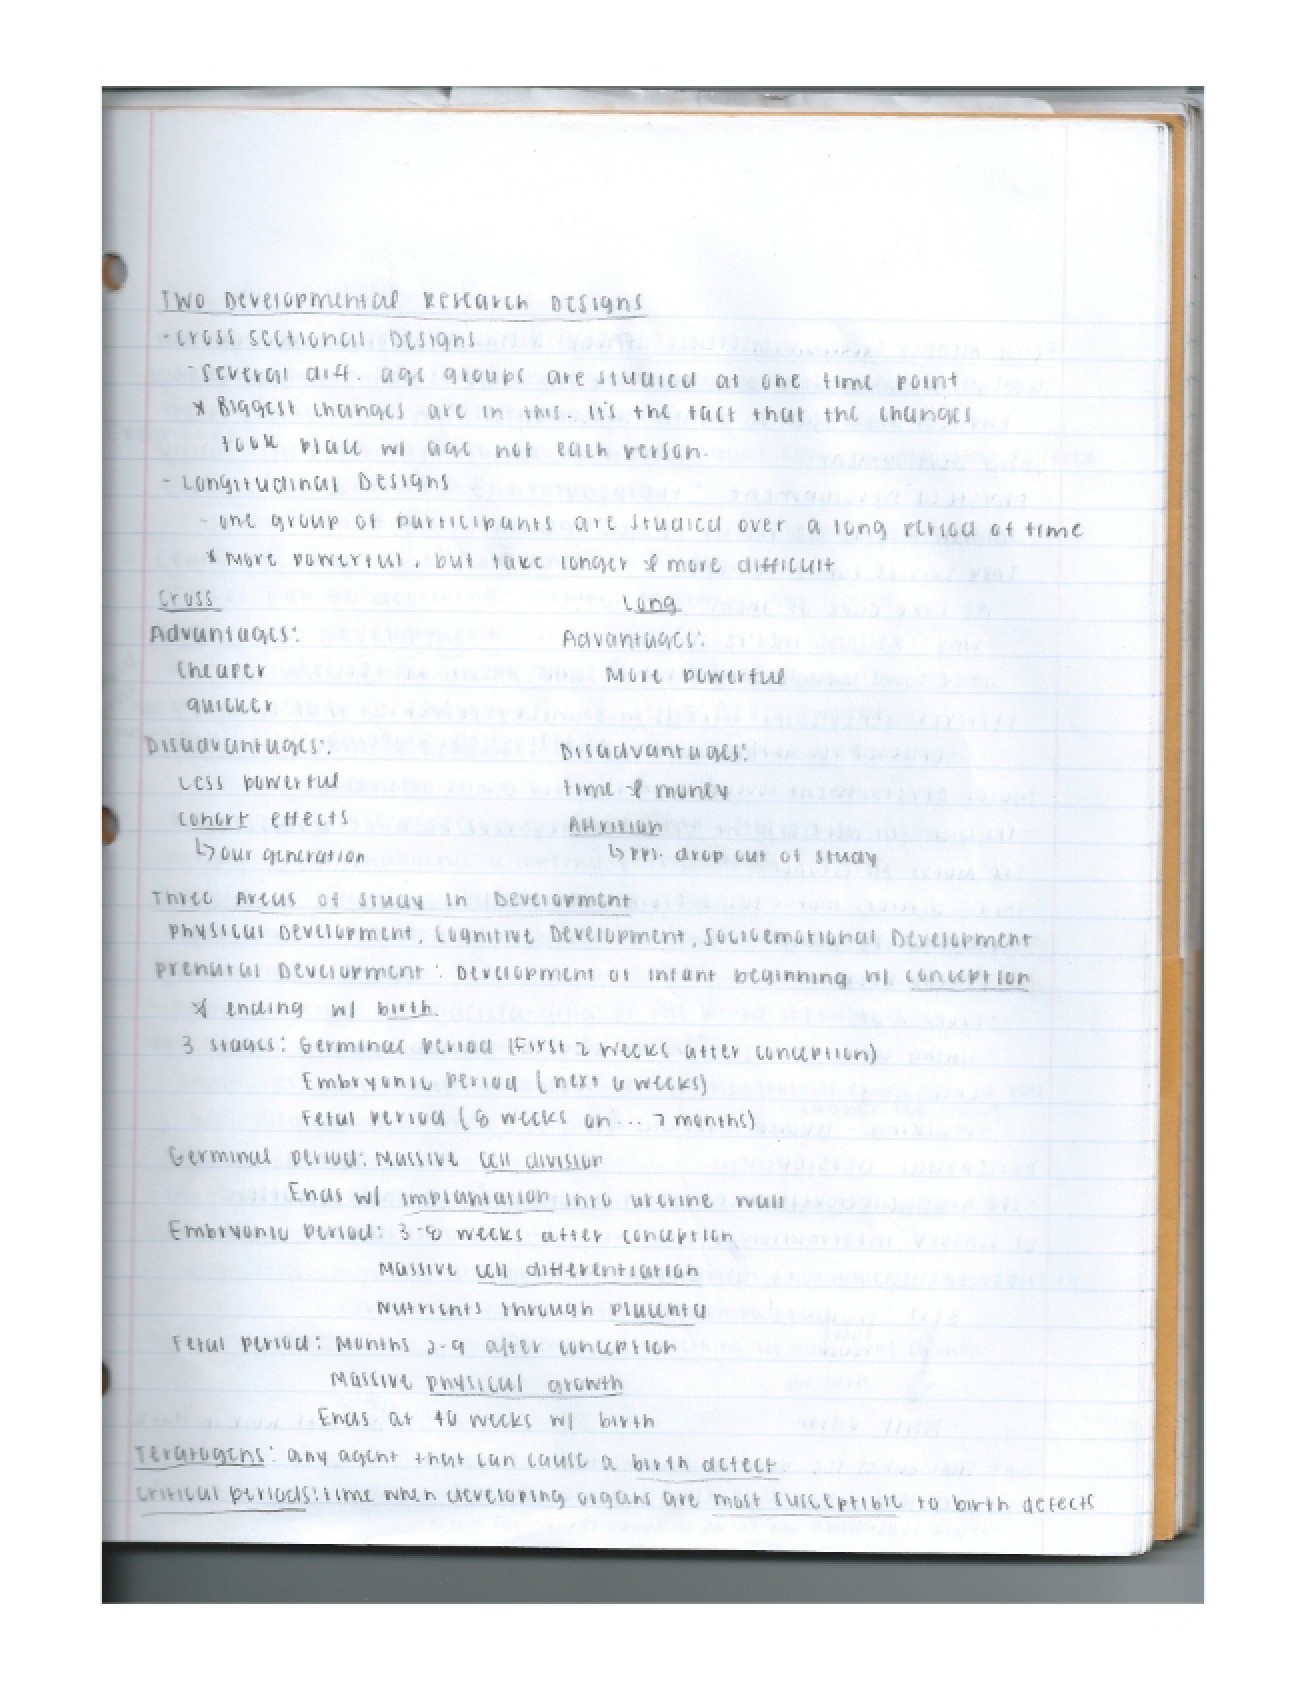 Two Developmental Research Designs
- Cross sectional Designs
- Several diff. age groups are studied at one time point
* Biggest changes are in this. It's the fact that the changes
took place w/ age not each person.
- Longitudinal Designs
- one group of participants are studied over a long period of time
* More powerful, but take longer & more difficult
Cross Long
Advantages: Advantages:
Cheaper More powerful
quicker
Disadvantages: Disadvantages:
Less powerful time & money
cohort effects Attrition
↳ our generation ↳ ppl. drop out of study
Three Areas of Study in Development
Physical Development, Cognitive Development, Socioemotional Development
Prenatal Development: Development of infant beginning w/ conception
& ending w/ birth.
3 stages: Germinal Period (First 2 weeks after conception)
Embryonic Period (next 6 weeks)
Fetal Period (8 weeks on... 7 months)
Germinal period: Massive cell division
Ends w/ implantation into uterine wall
Embryonic Period: 3-8 weeks after conception
Massive cell differentiation
Nutrients through placenta
Fetal Period: Months 2-9 after conception
Massive physical growth
Ends at 40 weeks w/ birth
Teratogens: any agent that can cause a birth defect
critical periods: time when developing organs are most susceptible to birth defects